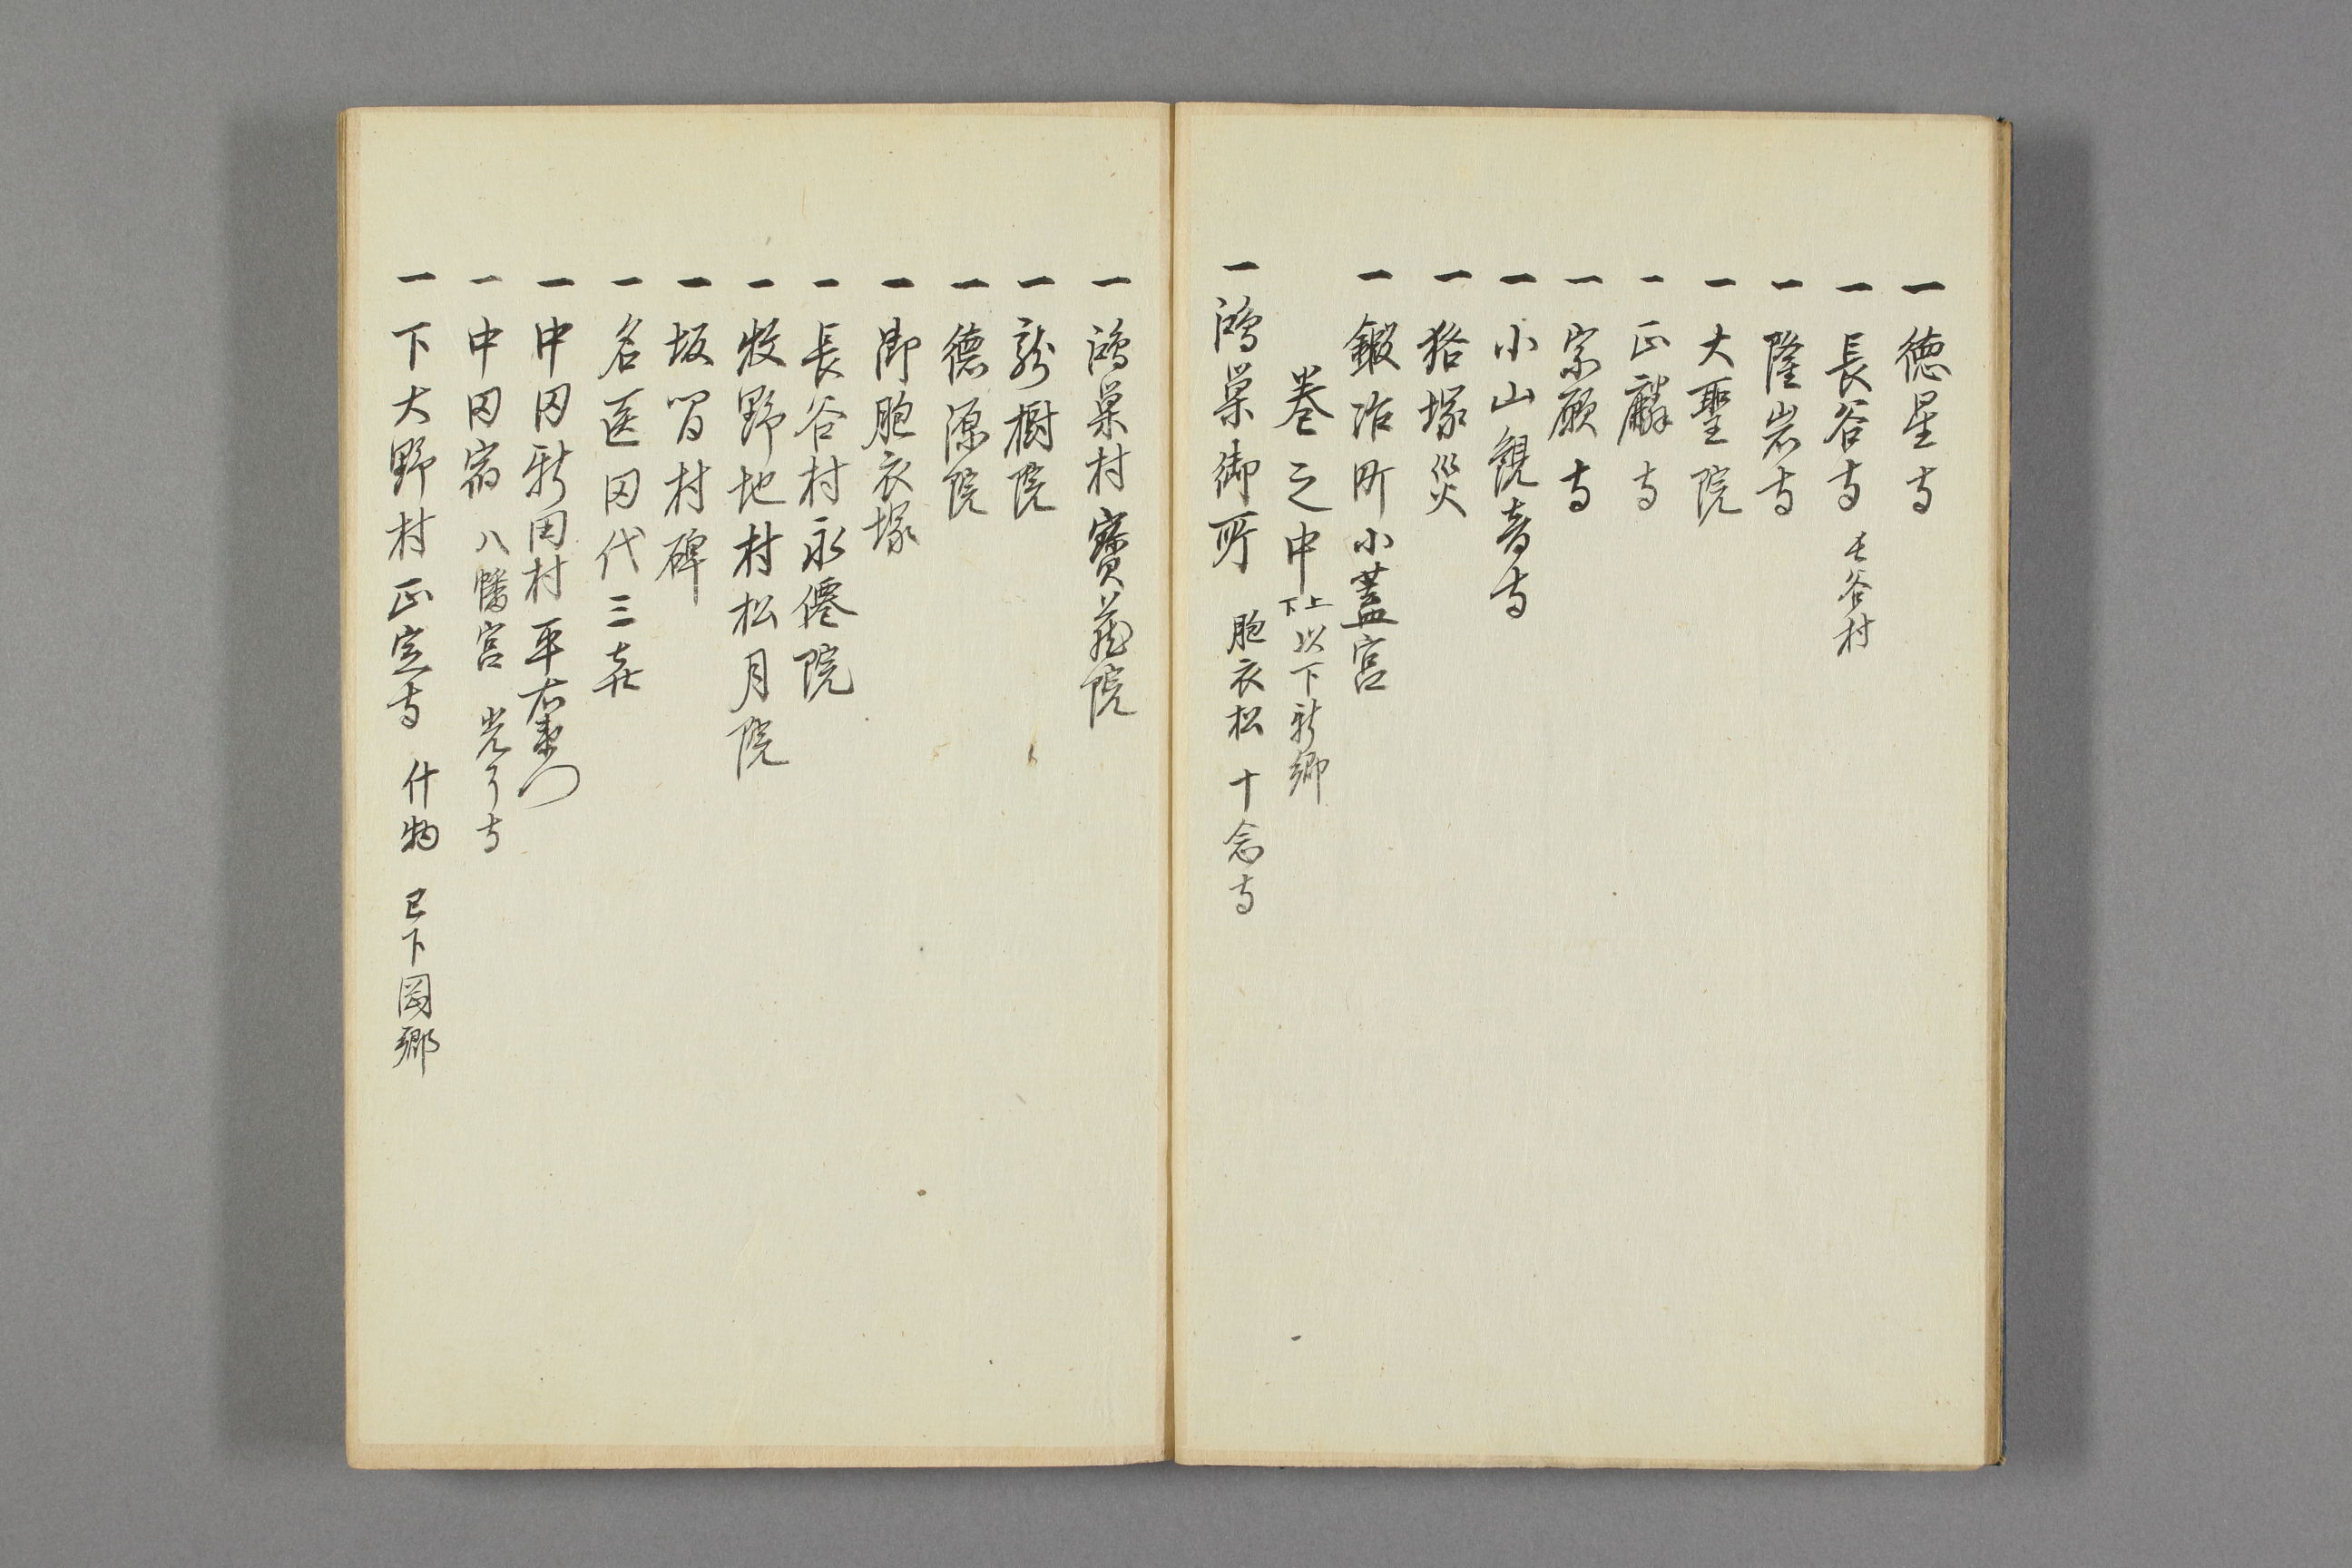 一 徳星寺
一 長谷寺 長谷村
一 隆岩寺
一 大聖院
一 正麟寺
一 宗願寺
一 小山観音寺
一 狢塚災
一 鍛冶町小蓋宮
巻之中 上下 以下新郷
一 鴻巣御所 胞衣松 十念寺
一 鴻巣村寶蔵院
一 龍樹院
一 徳源院
一 御胞衣塚
一 長谷村永僊院
一 牧野地村松月院
一 坂間村碑
一 名医田代三㐂
一 中田新田村平右衛門
一 中田宿 八幡宮 光了寺
一 下大野村正定寺 什物 已下岡郷